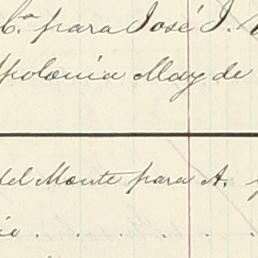 C.ª para José J.
Apolonia May de
del Monte para A. y
io . . . . . .